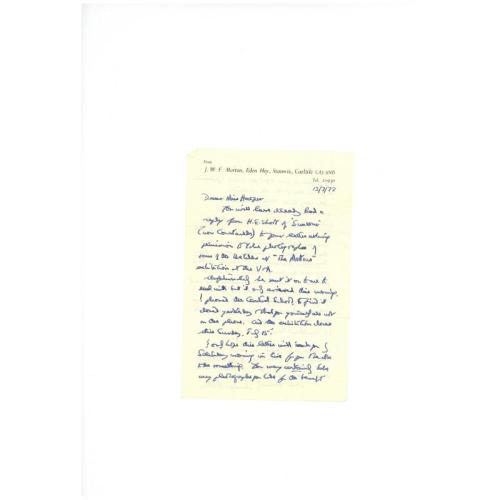 From
J. W. F. Morton, Eden Hey, Stanwix, Carlisle CA3 9ND
Tel. 21930
12/7/72
Dear Miss Harper
You will have already had a
reply from H. E. Scott of "Sundour"
(now Courtaulds) to your letter asking
permission to take photographs of
some of the textiles at "The Mortons"
exhibition at the V+A.
he sent it on to me to
deal with but it only arrived this morning.
I phoned the Central School, to find it
closed yesterday & that you yourself are not
on the phone, and the exhibition closes
this Sunday, July 15th.
I only hope this letter will reach you
Saturday morning in time for you to
something. You may certainly take
any photographs you like for the benefit